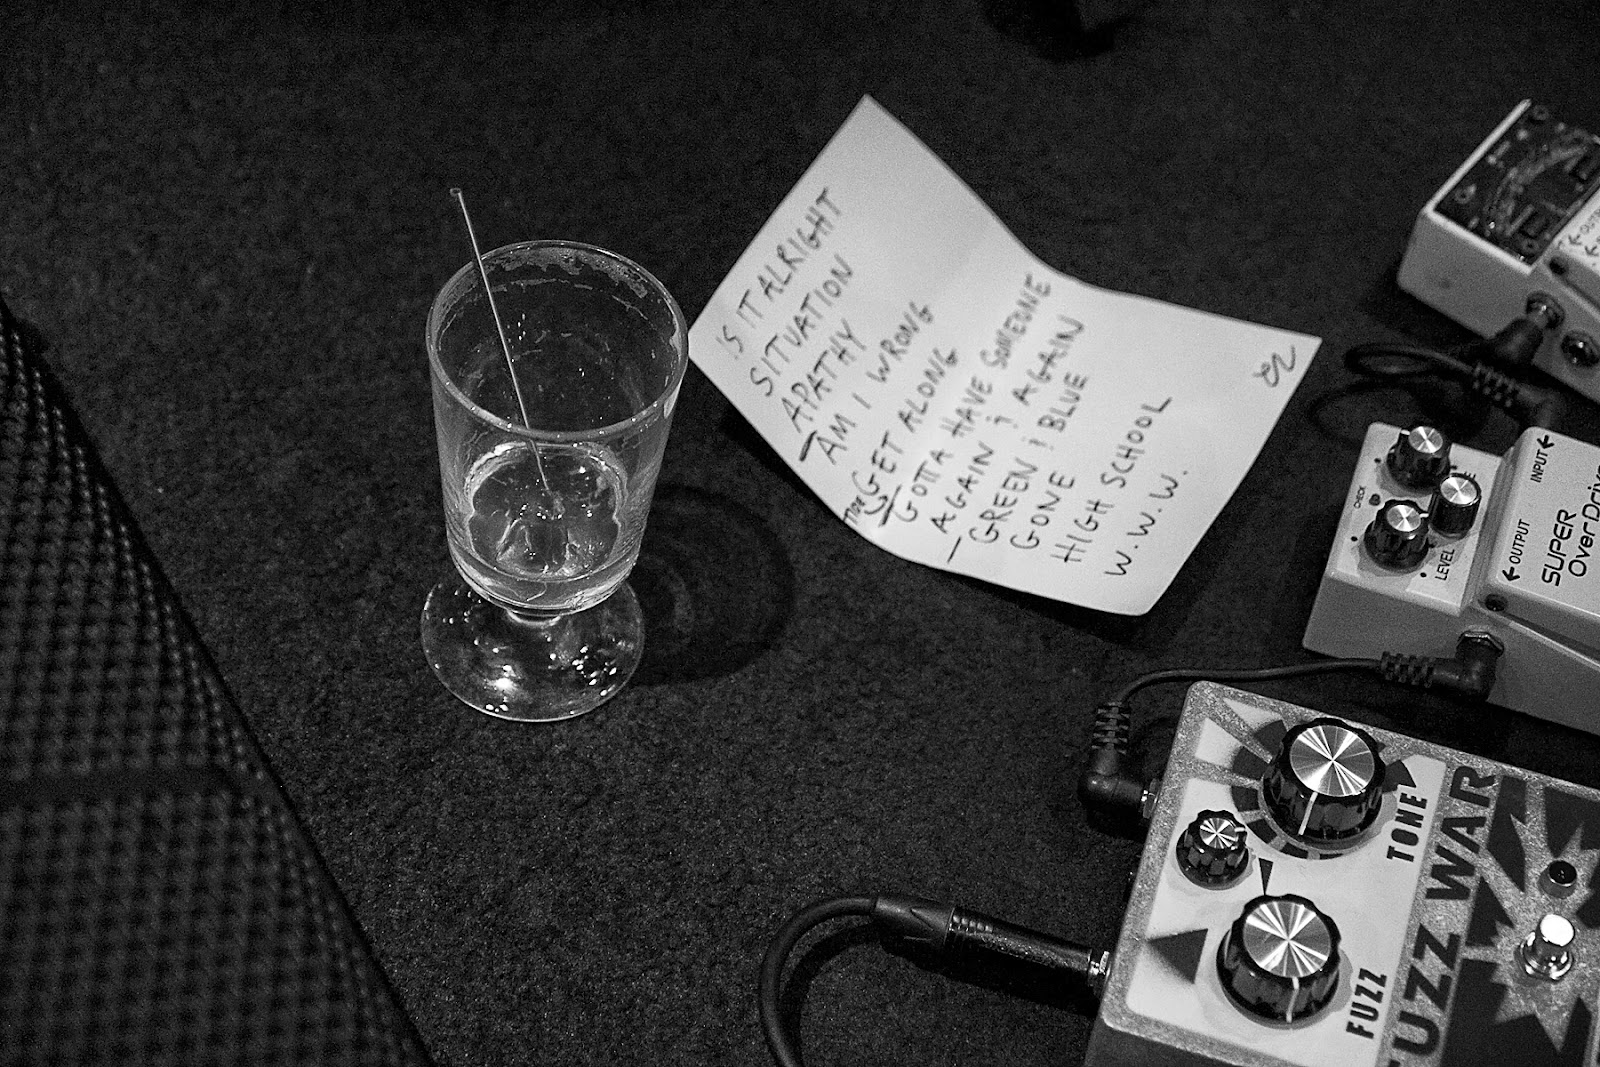 IS IT ALRIGHT
SITUATION
APATHY
AM I WRONG
TIDE GET ALONG
GOTTA HAVE SOMEONE
AGAIN & AGAIN
GREEN & BLUE
GONE
HIGH SCHOOL
W.W.W.
CHECK
LEVEL
OUTPUT
INPUT
SUPER
OverDrive
TONE
FUZZ
FUZZ WAR